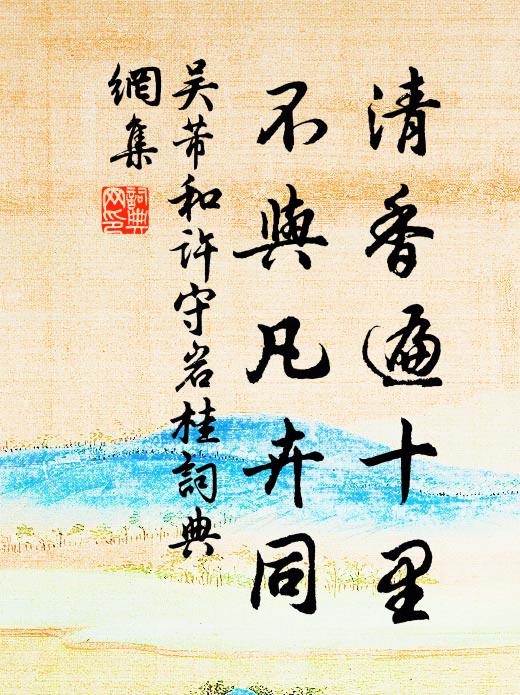 清香遍十里
不與凡卉同
吴芾和许守岩桂詞典
網集
詞典
网印